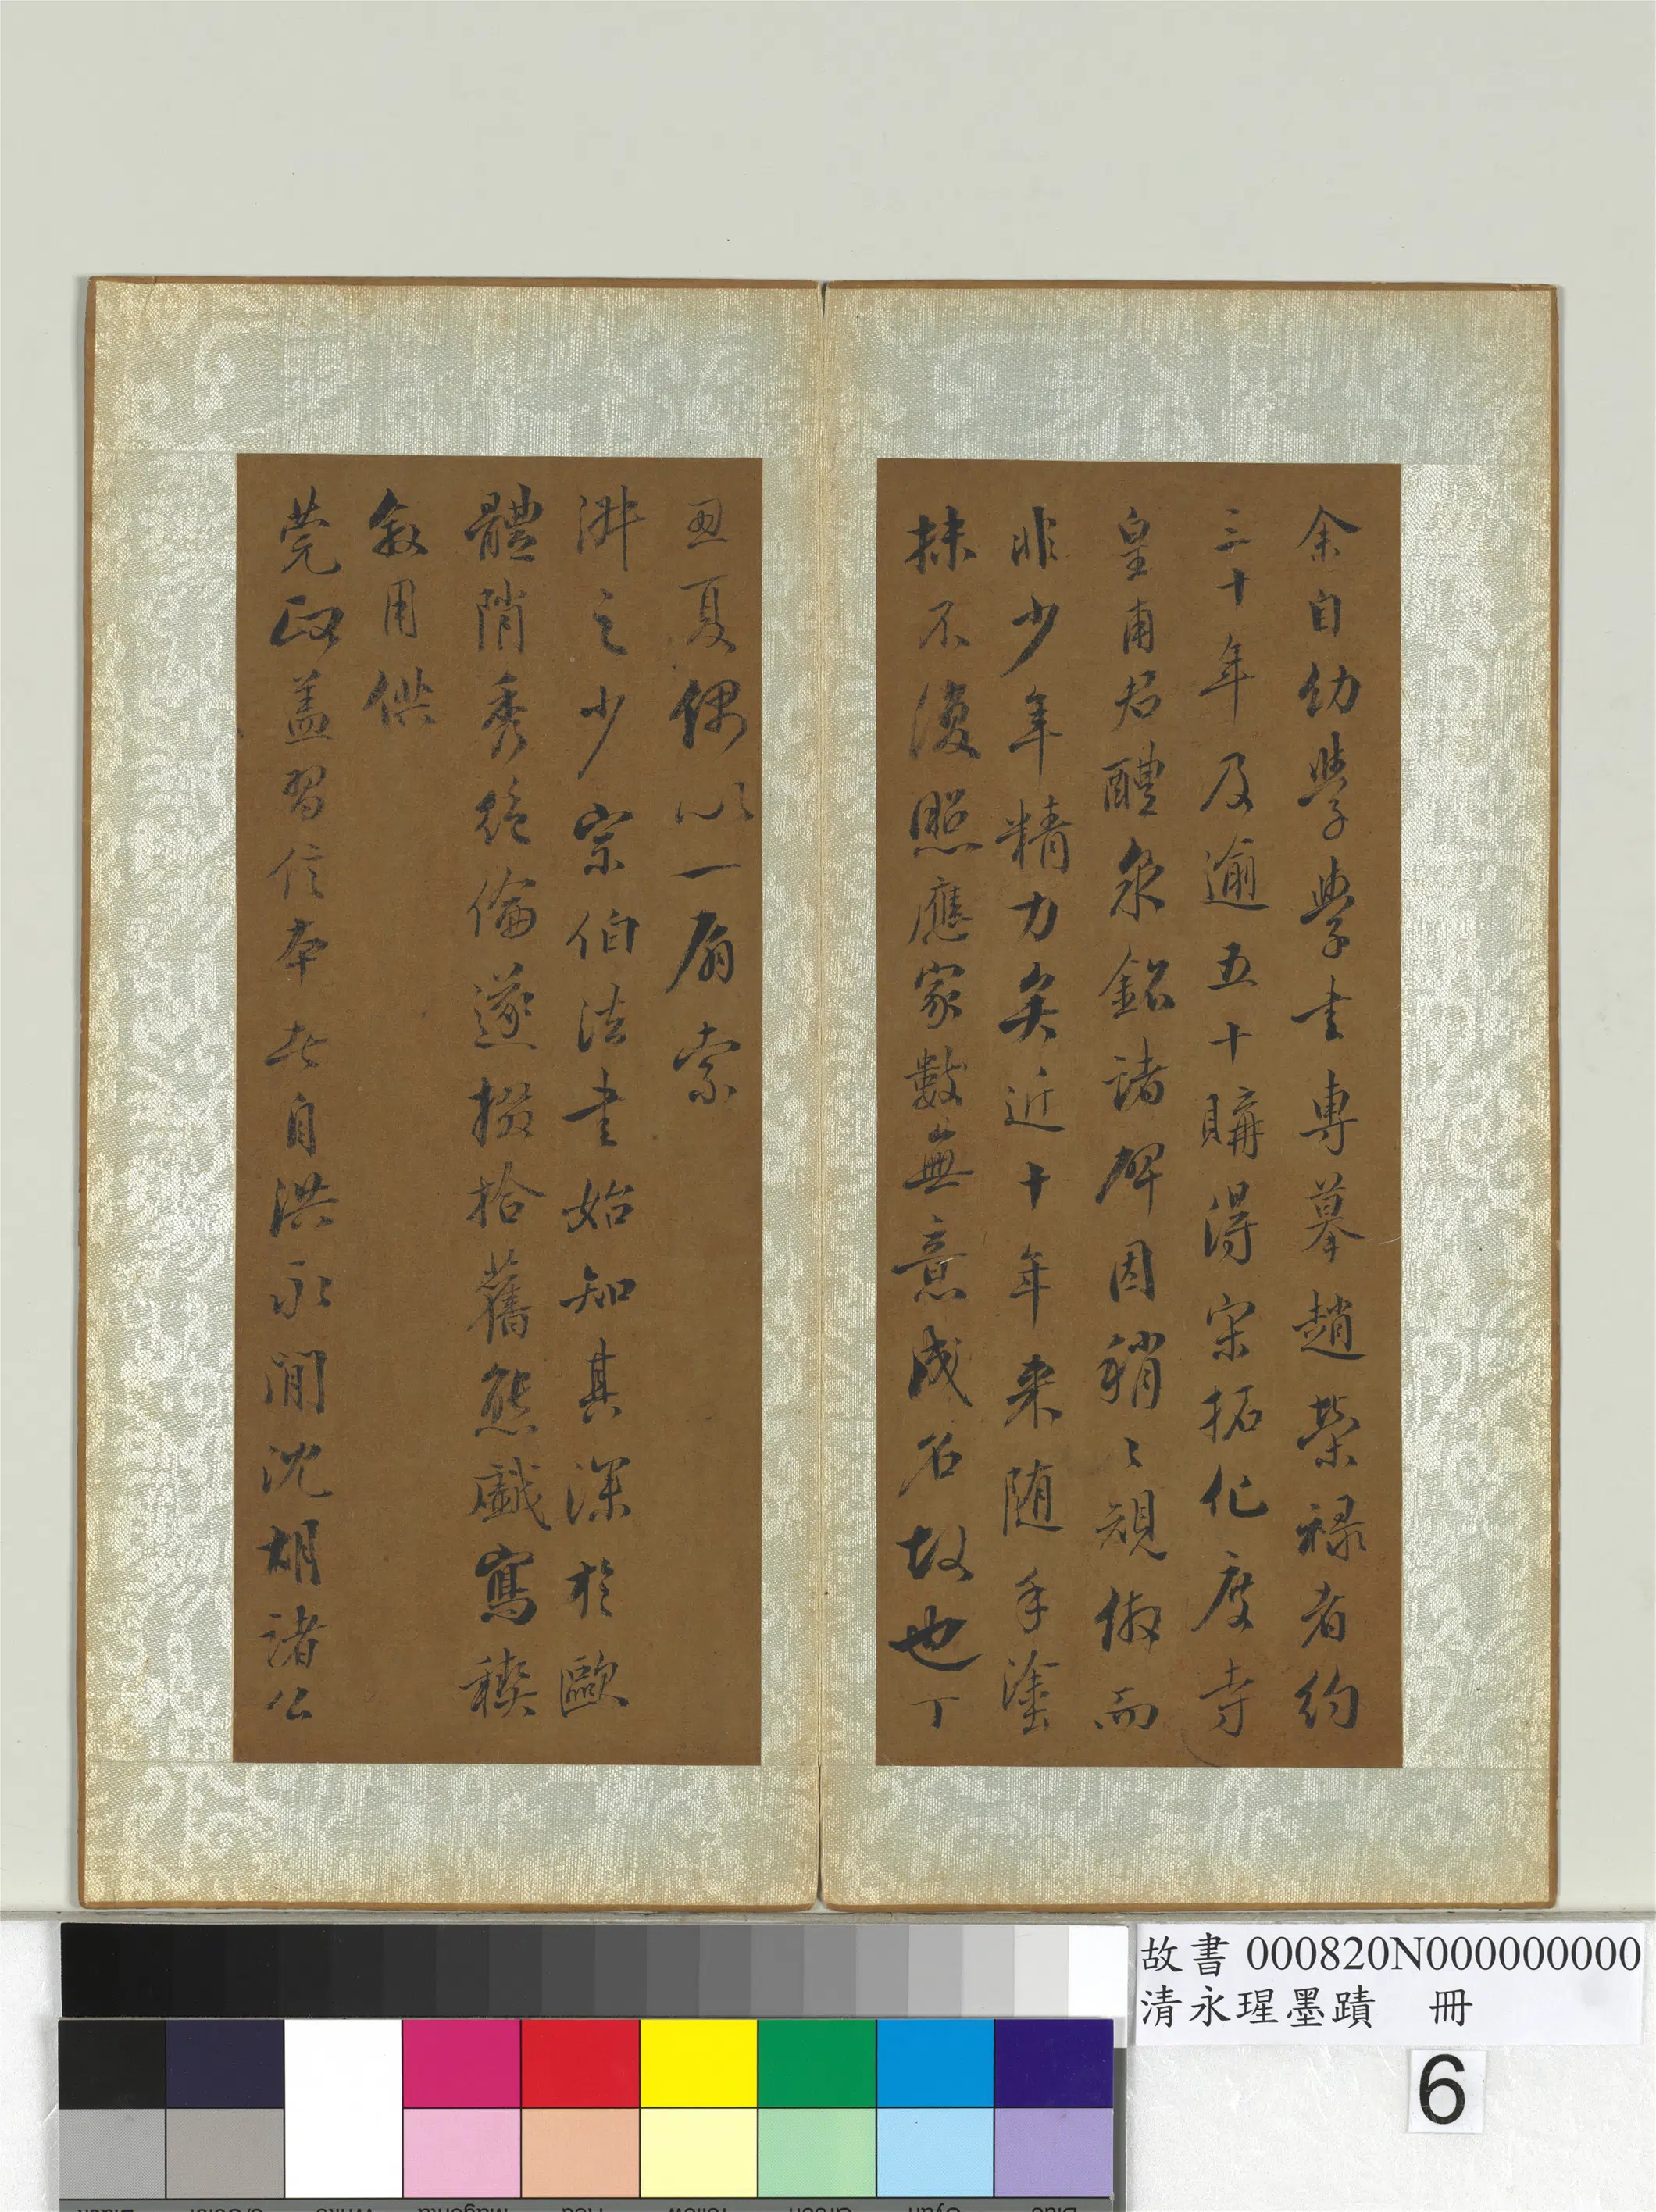 余自幼學學書專摹趙榮祿者約
三十年及逾五十購得宋拓化度寺
皇甫君醴泉銘諸碑因稍〻規倣而
非少年精力矣近十年來随手塗
抹不復照應家數無意成名故也丁
丑夏偶以一扇索
之少宗伯法書始知其深於歐
體陗秀絕倫遂掇拾舊態戲寫稧
敘用供
莞政蓋習信本者自洪永間沈胡諸公
故書 000820N000000000
清永瑆墨蹟 冊
6